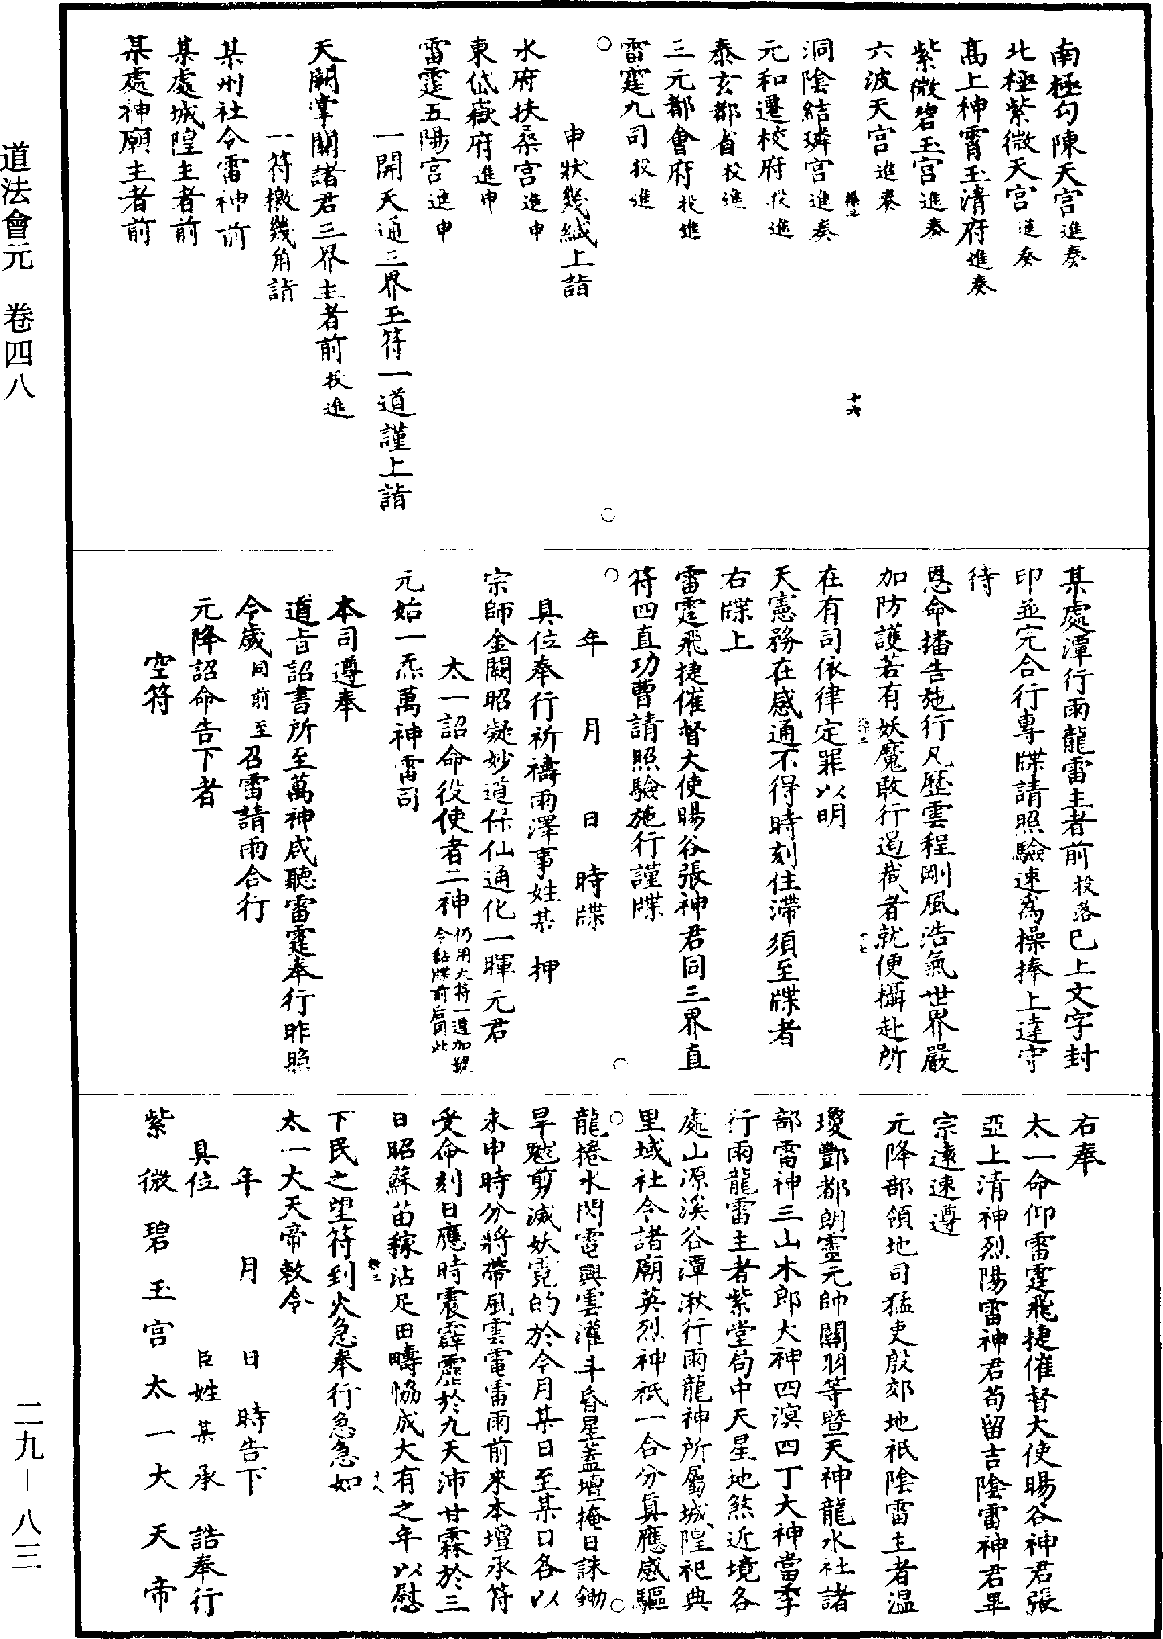 南極勾陳天宮進奏
北極紫微天宮進奏
高上神霄玉清府進奏
紫微碧玉宮進奏
六波天宮進奏
十六
洞陰結璘宮進奏
元和遷校府投進
泰玄都省投進
三元都會府投進
雷霆九司投進
申狀幾緘上詣
水府扶桑宮進申
東岱嶽府進申
雷霆五陽宮進申
一開天通三界玉符一道謹上詣
天關掌關諸君三界主者前投進
一符檄幾角詣
某州社令雷神前
某處城隍主者前
某處神廟主者前
某處潭行雨龍雷主者前投落已上文字封
印並完合行專牒請照驗速為操捧上達守
待
恩命播告施行凡歷雲程剛風浩氣世界嚴
加防護若有妖魔敢行遏截者就便攝赴所
十七
在有司依律定罪以明
天憲務在感通不得時刻住滯須至牒者
右牒上
雷霆飛捷催督大使暘谷張神君同三界直
符四直功曹請照驗施行謹牒
年 月 日 時牒
具位奉行祈禱雨澤事姓某 押
宗師金闕昭凝妙道保仙通化一暉元君
太一詔命役使者二神仍用大符一道加號令粘牒前后同此
元始一炁萬神雷司
本司遵奉
道旨詔書所至萬神咸聽雷霆奉行昨照
今歲同前至召雷請雨合行
元降詔命告下者
空符
右奉
太一命仰雷霆飛捷催督大使暘谷神君張
亞上清神烈陽雷神君苟留吉陰雷神君畢
宗遠速遵
元降部領地司猛吏殷郊地祇陰雷主者溫
瓊酆都朗靈元帥關羽等暨天神龍水社諸
部雷神三山木郎大神四溟四丁大神當季
行雨龍雷主者紫堂局中天星地煞近境各
處山源溪谷潭湫行雨龍神所屬城隍祀典
里域社令諸廟英烈神祇一合分真應感驅
龍捲水閃電興雲灌斗昏星蓋壇掩日誅鋤
旱魃剪滅妖霓的於今月某日至某日各以
未申時分將帶風雲雷電雨前來本壇承符
受命刻日應時震霹靂於九天沛甘霖於三
日昭蘇苗稼沾足田疇恊成大有之年以慰
十八
下民之望符到火急奉行急急如
太一大天帝敕令
年 月 日 時告下
具位 臣姓某承 誥奉行
紫微碧玉宮太一大天帝
道法會元 卷四八
二九—八三